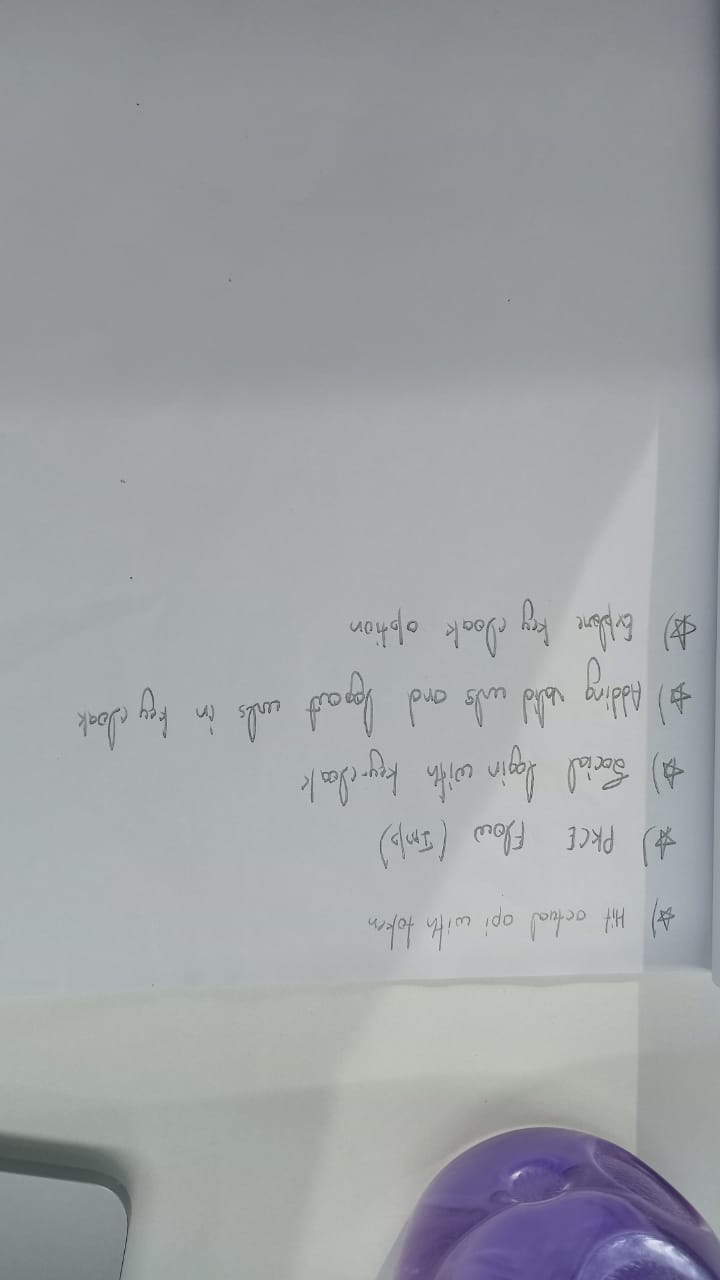 ☆) Hit actual api with token
☆) PKCE Flow (Imp)
☆) Social login with key-cloak
☆) Adding valid urls and logout urls in key cloak
☆) Explore key cloak option